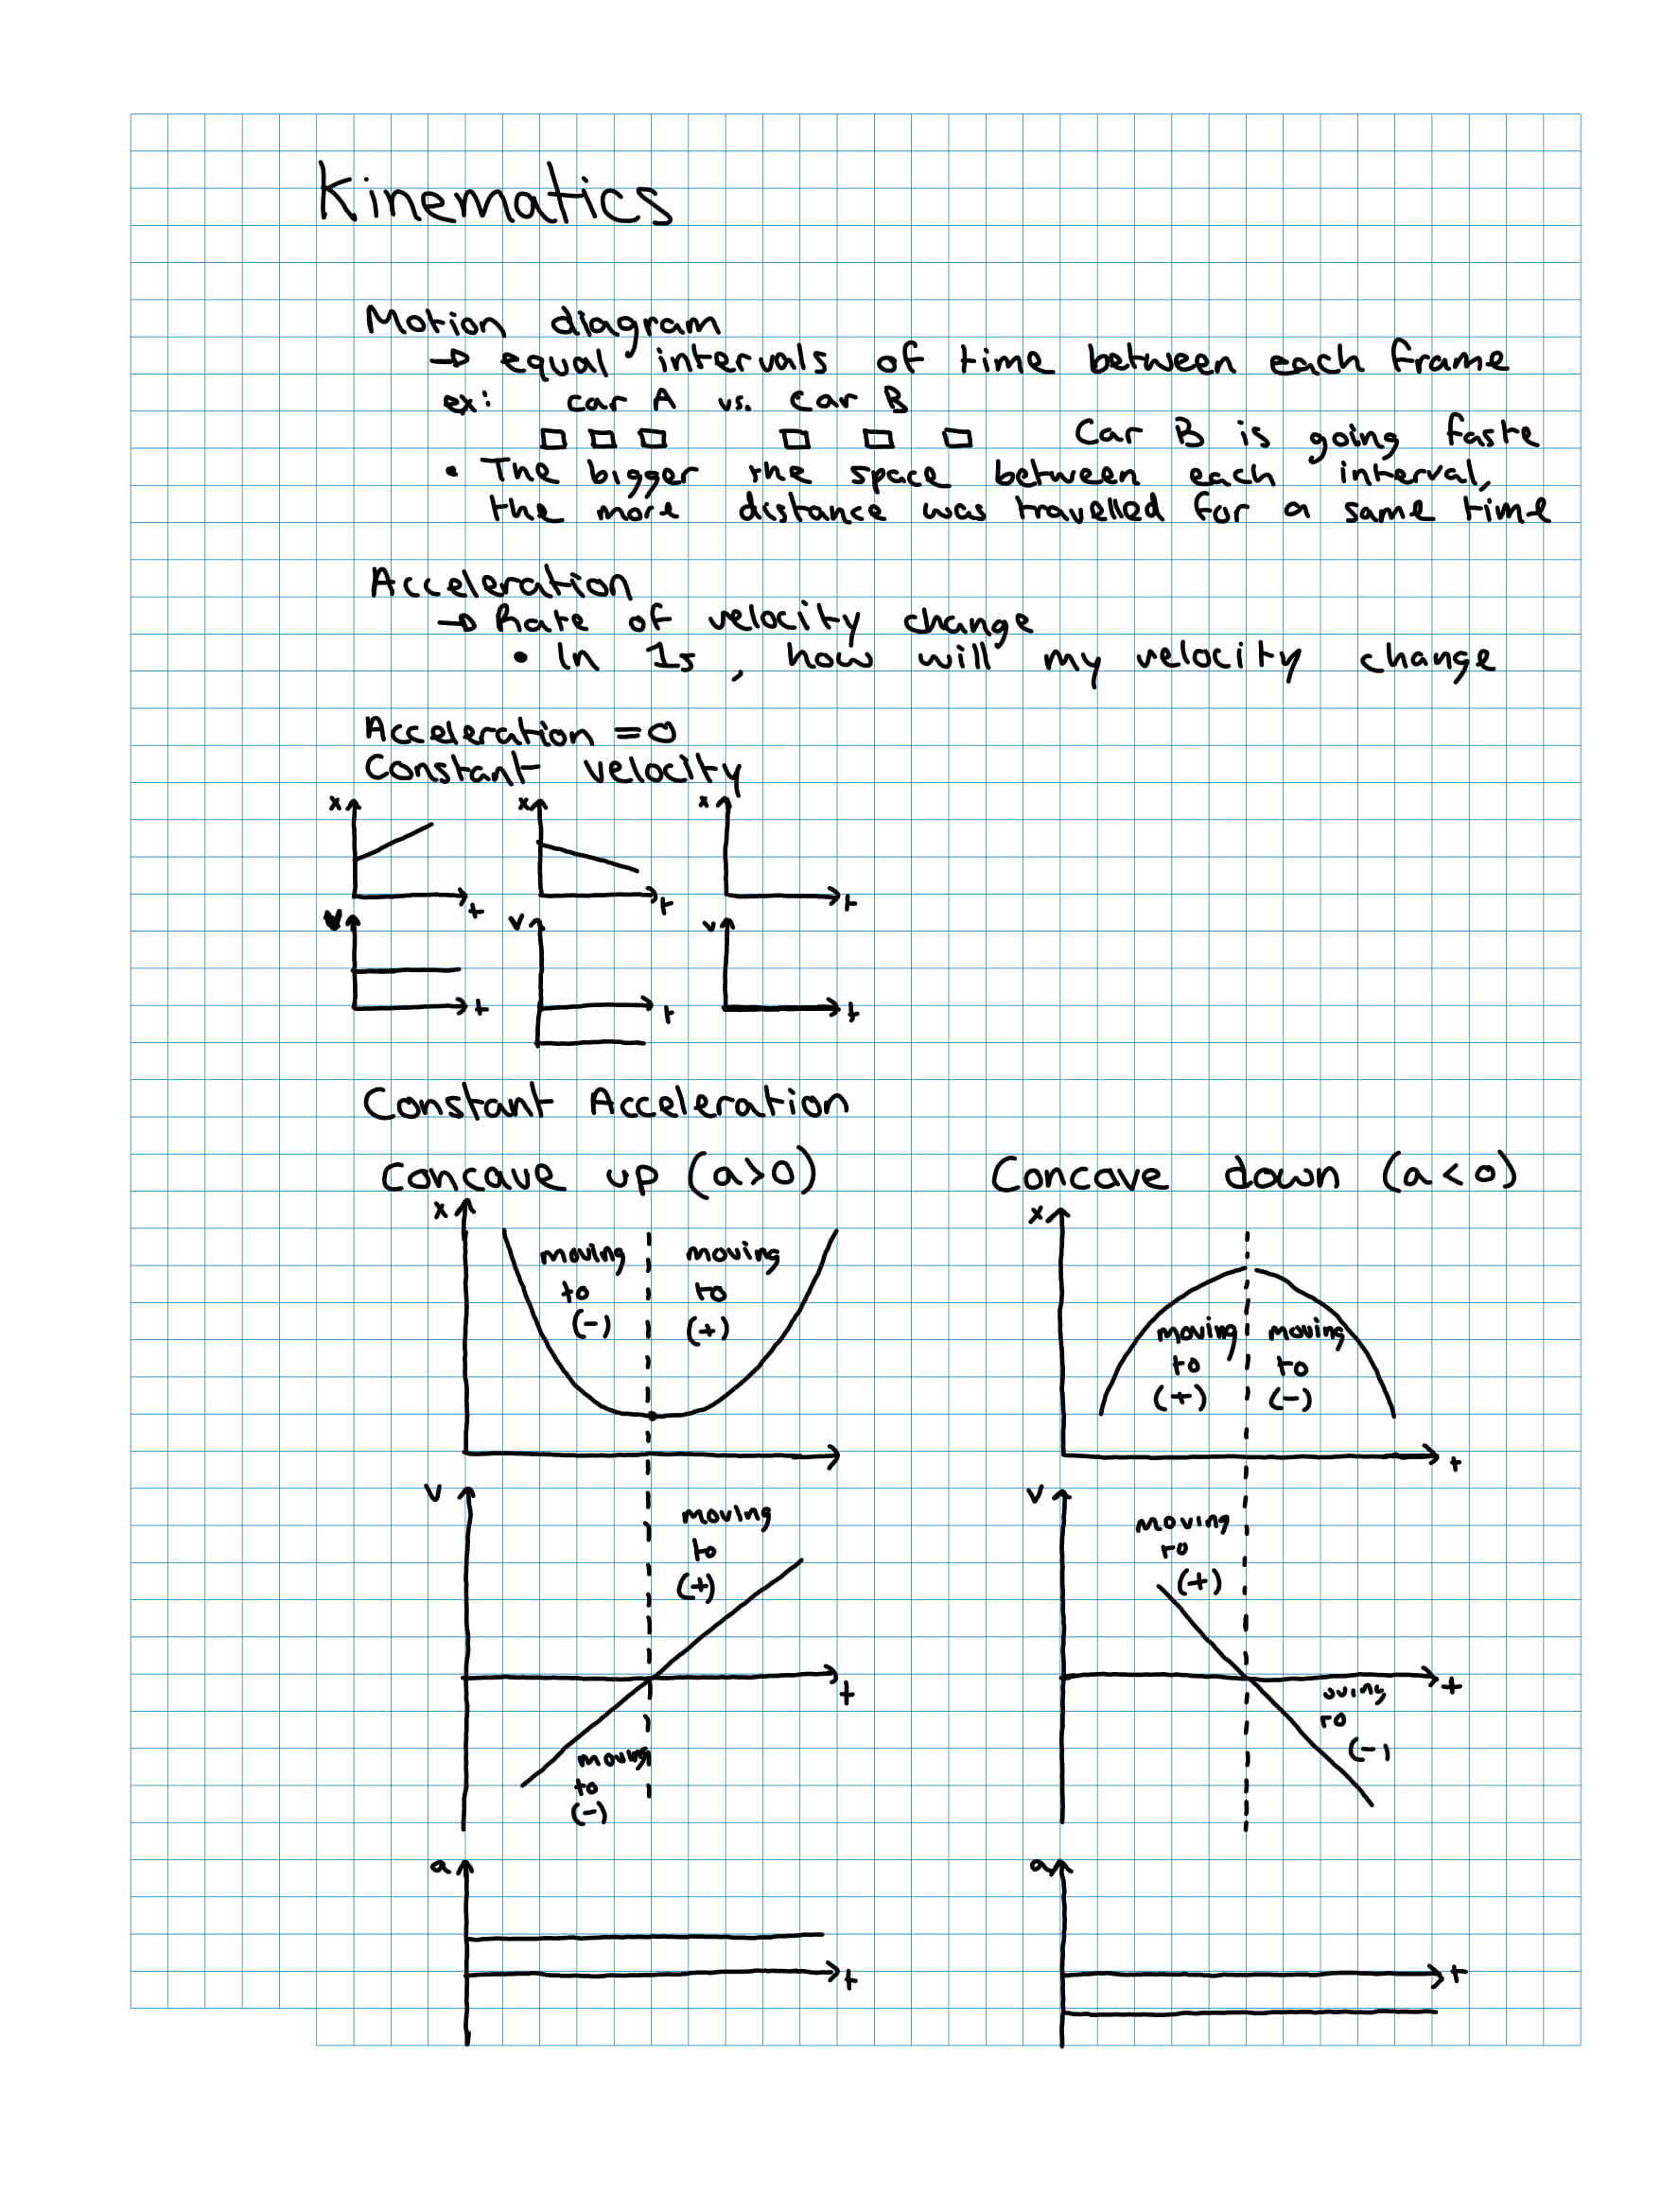 Kinematics
Motion diagram
→ equal intervals of time between each frame
ex: car A vs. car B
Car B is going faste
• The bigger the space between each interval,
the more distance was travelled for a same time
Acceleration
→ Rate of velocity change
• In 1s, how will my velocity change
Acceleration = 0
Constant velocity
x x x
t t t
v v v
t t t
Constant Acceleration
Concave up (a>0) Concave down (a<0)
x x
moving moving
to to
(-) (+)
moving moving
to to
(+) (-)
t
v v
moving
to
(+)
moving
to
(+)
t t
moving
to
(-)
oving
to
(-)
a a
t t